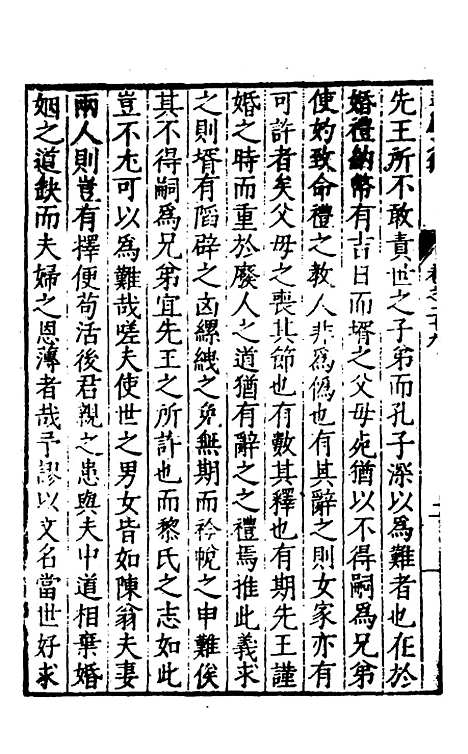 先王所不敢責世之子弟而孔子深以爲難者也在於
婚禮納幣有吉日而壻之父母死猶以不得嗣爲兄弟
使妁致命禮之教人非爲僞也有其辭之則女家亦有
可許者矣父母之喪其節也有數其釋也有期先王謹
婚之時而重於廢人之道猶有辭之之禮焉推此義求
之則壻有䧟辟之凶縲絏之免無期而衿帨之申難俟
其不得嗣爲兄弟宜先王之所許也而黎氏之志如此
豈不尤可以爲難哉嗟夫使世之男女皆如陳翁夫妻
兩人則豈有擇便苟活後君親之患與夫中道相棄婚
姻之道缺而夫婦之恩薄者哉予謬以文名當世好求
卷之二十九